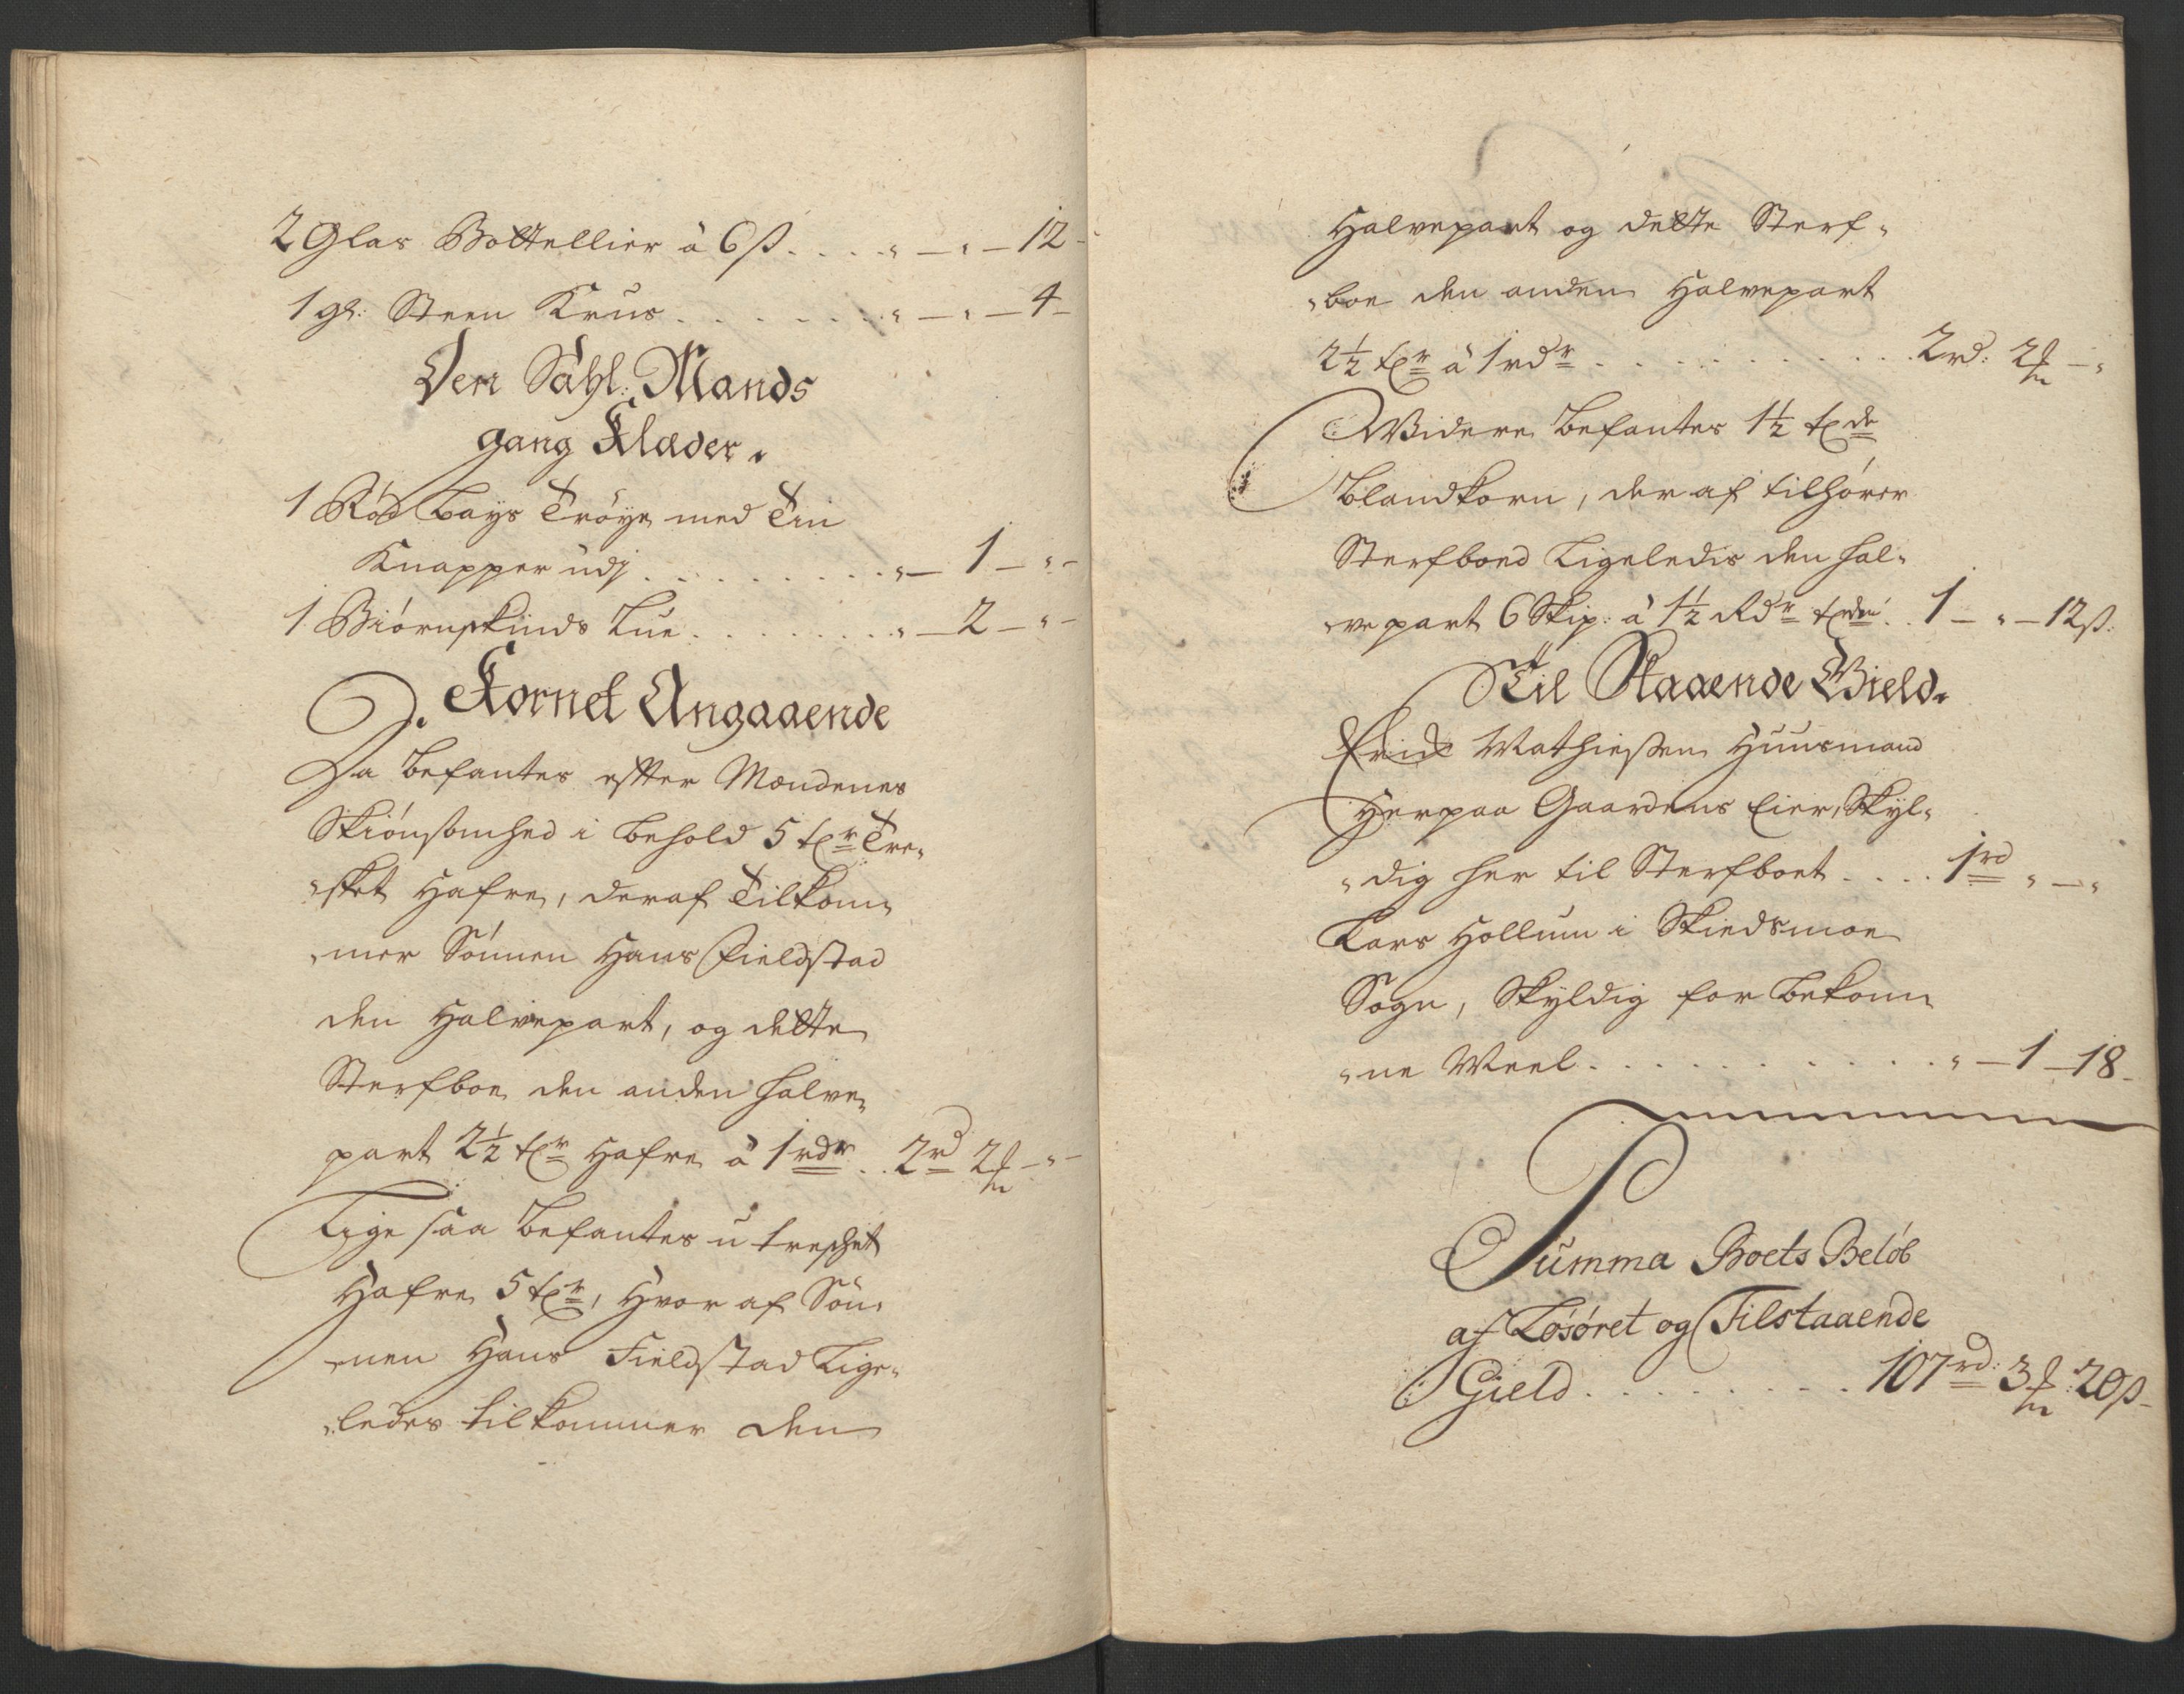 2 Glas Bottellier à 6 ß. . . . " — " — 12 -
1 gl: Steen Krus . . . . . . . " — " — 4 -
Den Sahl: Mands
gang Klæder.
1 Rød Bays Trøye med Tin
Knapper udj . . . . . . . . . " — 1 — " -
1 Biørnskinds Lue . . . . . . . . " — 2 — " -
Kornet Angaaende
Da befantes effter Mændenes
Skiønsomhed i behold 5 tr Tre„
„sket Hafre, deraf Tilkom„
„mer Sønnen Hans Fieldstad
den Halvepart, og dette
Sterfboe den anden halve„
part 2½ tr Hafre à 1 rdr . . 2 rd 2 - " -
Lige saa befantes u treschet
Hafre 5 tr, Hvor af Søn„
„nen Hans Fieldstad Lige„
„ledes tilkommer den
Halvepart og dette Sterf„
„boe den anden Halvepart
2½ tr à 1 rdr . . . . . . . . . . . 2 rd: 2 — "
Widere befantes 1½ tde
Blandkorn, der af tilhører
Sterfboed Ligeledis den hal„
„ve part 6 Skip: à 1½ Rdr tden . . 1 — " — 12 ß.
Til Staaende Gield.
Erich Mathiessen Huusmand
Herpaa Gaardens Eier, Skyl„
„dig her til Sterfboet . . . . 1 rd " — "
Lars Hollum i Skiedsmoe
Sogn, Skyldig for bekom„
„ne Meel . . . . . . . . . . . " — 1 — 18 -
Summa Boets Beløb
af Løsøret og Tilstaaende
Gield . . . . . . . . . 107 rd: 3 : 20 ß -